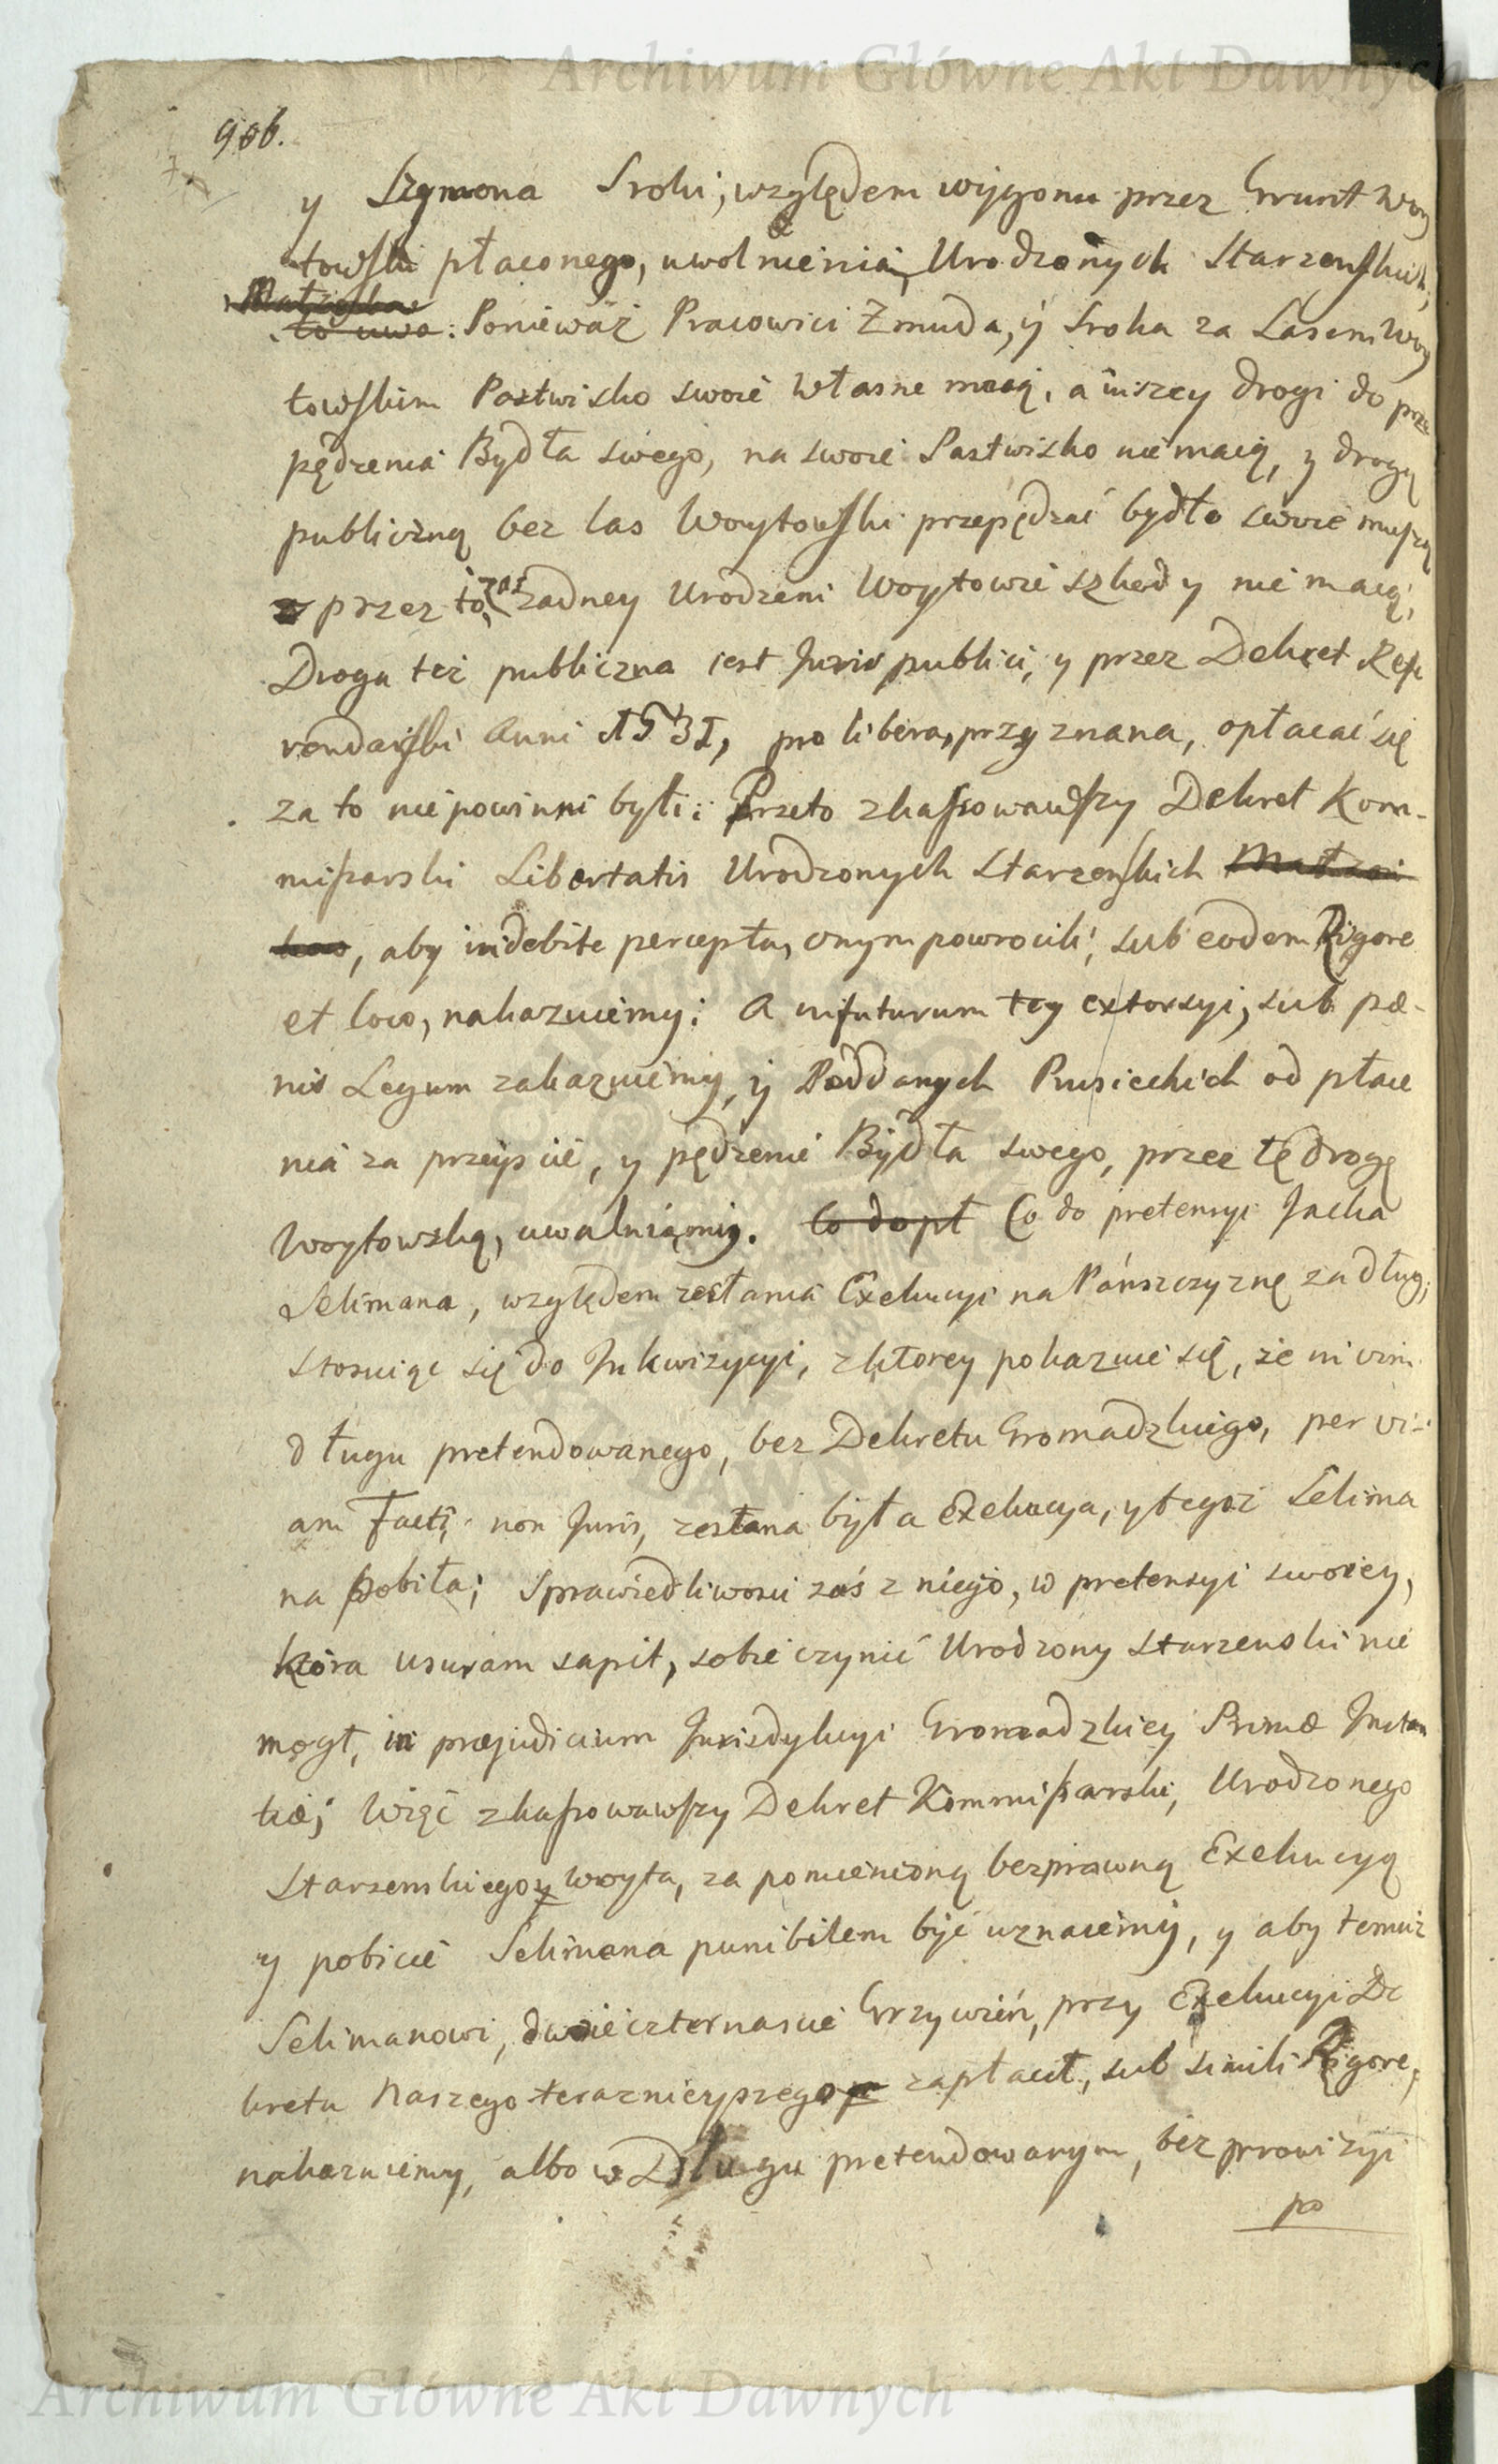 Archiwum Główne Akt Dawnych
906.
y Szymona Sroki, względem wygonu przez Grunt Woy
towski płaconego, uwolnienia, Urodzonych Starzenskich,
Małżonkow
to uwa: Ponieważ Pracowici Zmuda, y Sroka za Lasem Woy
towskim Pastwisko swoie własne maią, a inszey drogi do prze
pędzenia Bydła swego, na swoie Pastwisko nie maią, y drogą
publiczną bez las Woytowski przepędzać bydło swoie muszą
przez to zaś żadney Urodzeni Woytowie szkody nie maią,
Droga też publiczna iest Juris publici, y przez Dekret Refe
rendarski Anni 1531, pro libera, przyznana, opłacać się
za to nie powinni byli: Przeto zkassowawszy Dekret Kom-
missarski Libertatis Urodzonych Starzenskich Małżon
kow, aby indebite percepta, onym powrocili, sub eodem Rigore
et loco, nakazuiemy; A in futurum tey extorsyi, sub pæ-
nis Legum zakazuiemy, y Poddanych Rusieckich od płace
nia za przeyscie, y pędzenie Bydła swego, przez tę drogę
Woytowską, uwalniamy. Co do pł Co do pretensyi Jacka
Selimana, względem zesłania Exekucyi na Pańszczyznę za dług,
Stosuiąc się do Inkwizycyi, z ktorey pokazuie się, że in vim
długu pretendowanego, bez Dekretu Gromadzkiego, per vi-
am Facti, non Juris, zesłana była Exekucya, y tegoż Selima
na pobiła; Sprawiedliwosci zaś z niego, w pretensyi swoiey,
ktora usuram sapit, sobie czynić Urodzony Starzenski nie
mogł, in præjudicium Jurisdykcyi Gromadzkiey Primæ Instan
tiæ; Więc zkassowawszy Dekret Kommissarski, Urodzonego
Starzenskiego y Woyta, za pomienioną bezprawną Exekucyą
y pobicie Selimana punibilem być uznaiemy, y aby temuż
Selimanowi, dwoie czternascie Grzywień, przy Exekucyi De
kretu Naszego teraznieyszego zapłacił, sub simili Rigore,
nakazuiemy, albo w Długu pretendowanym, bez prowizyi
po
Archiwum Główne Akt Dawnych